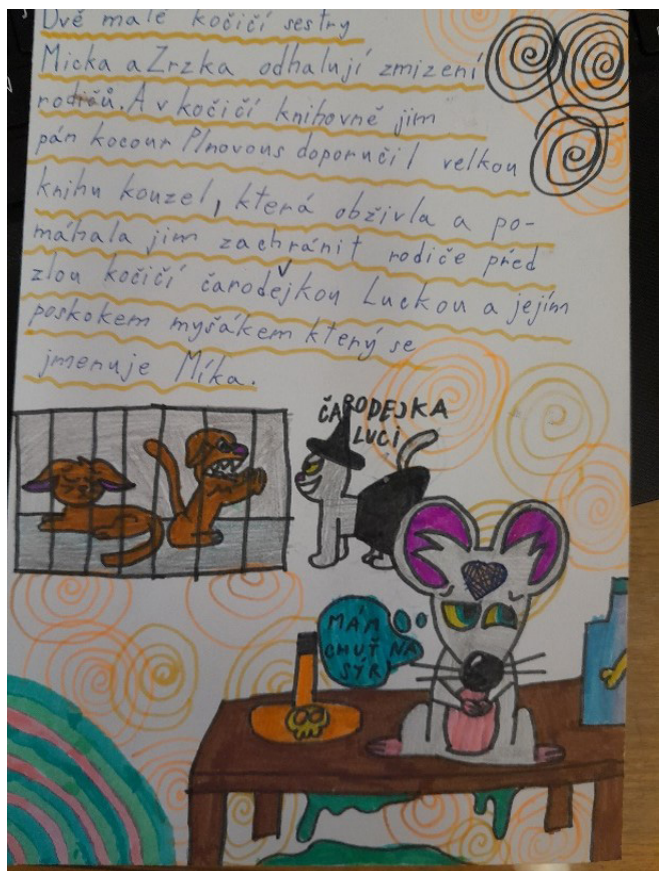 Dvě malé kočičí sestry
Micka a Zrzka odhalují zmizení
rodičů. A v kočičí knihovně jim
pán kocour Plnovous doporučil velkou
knihu kouzel, která obživla a po-
máhala jim zachránit rodiče před
zlou kočičí čarodějkou Luckou a jejím
poskokem myšákem který se
jmenuje Míka.
ČARODEJKA
LUCI
MÁM
CHUŤ NA
SÝR